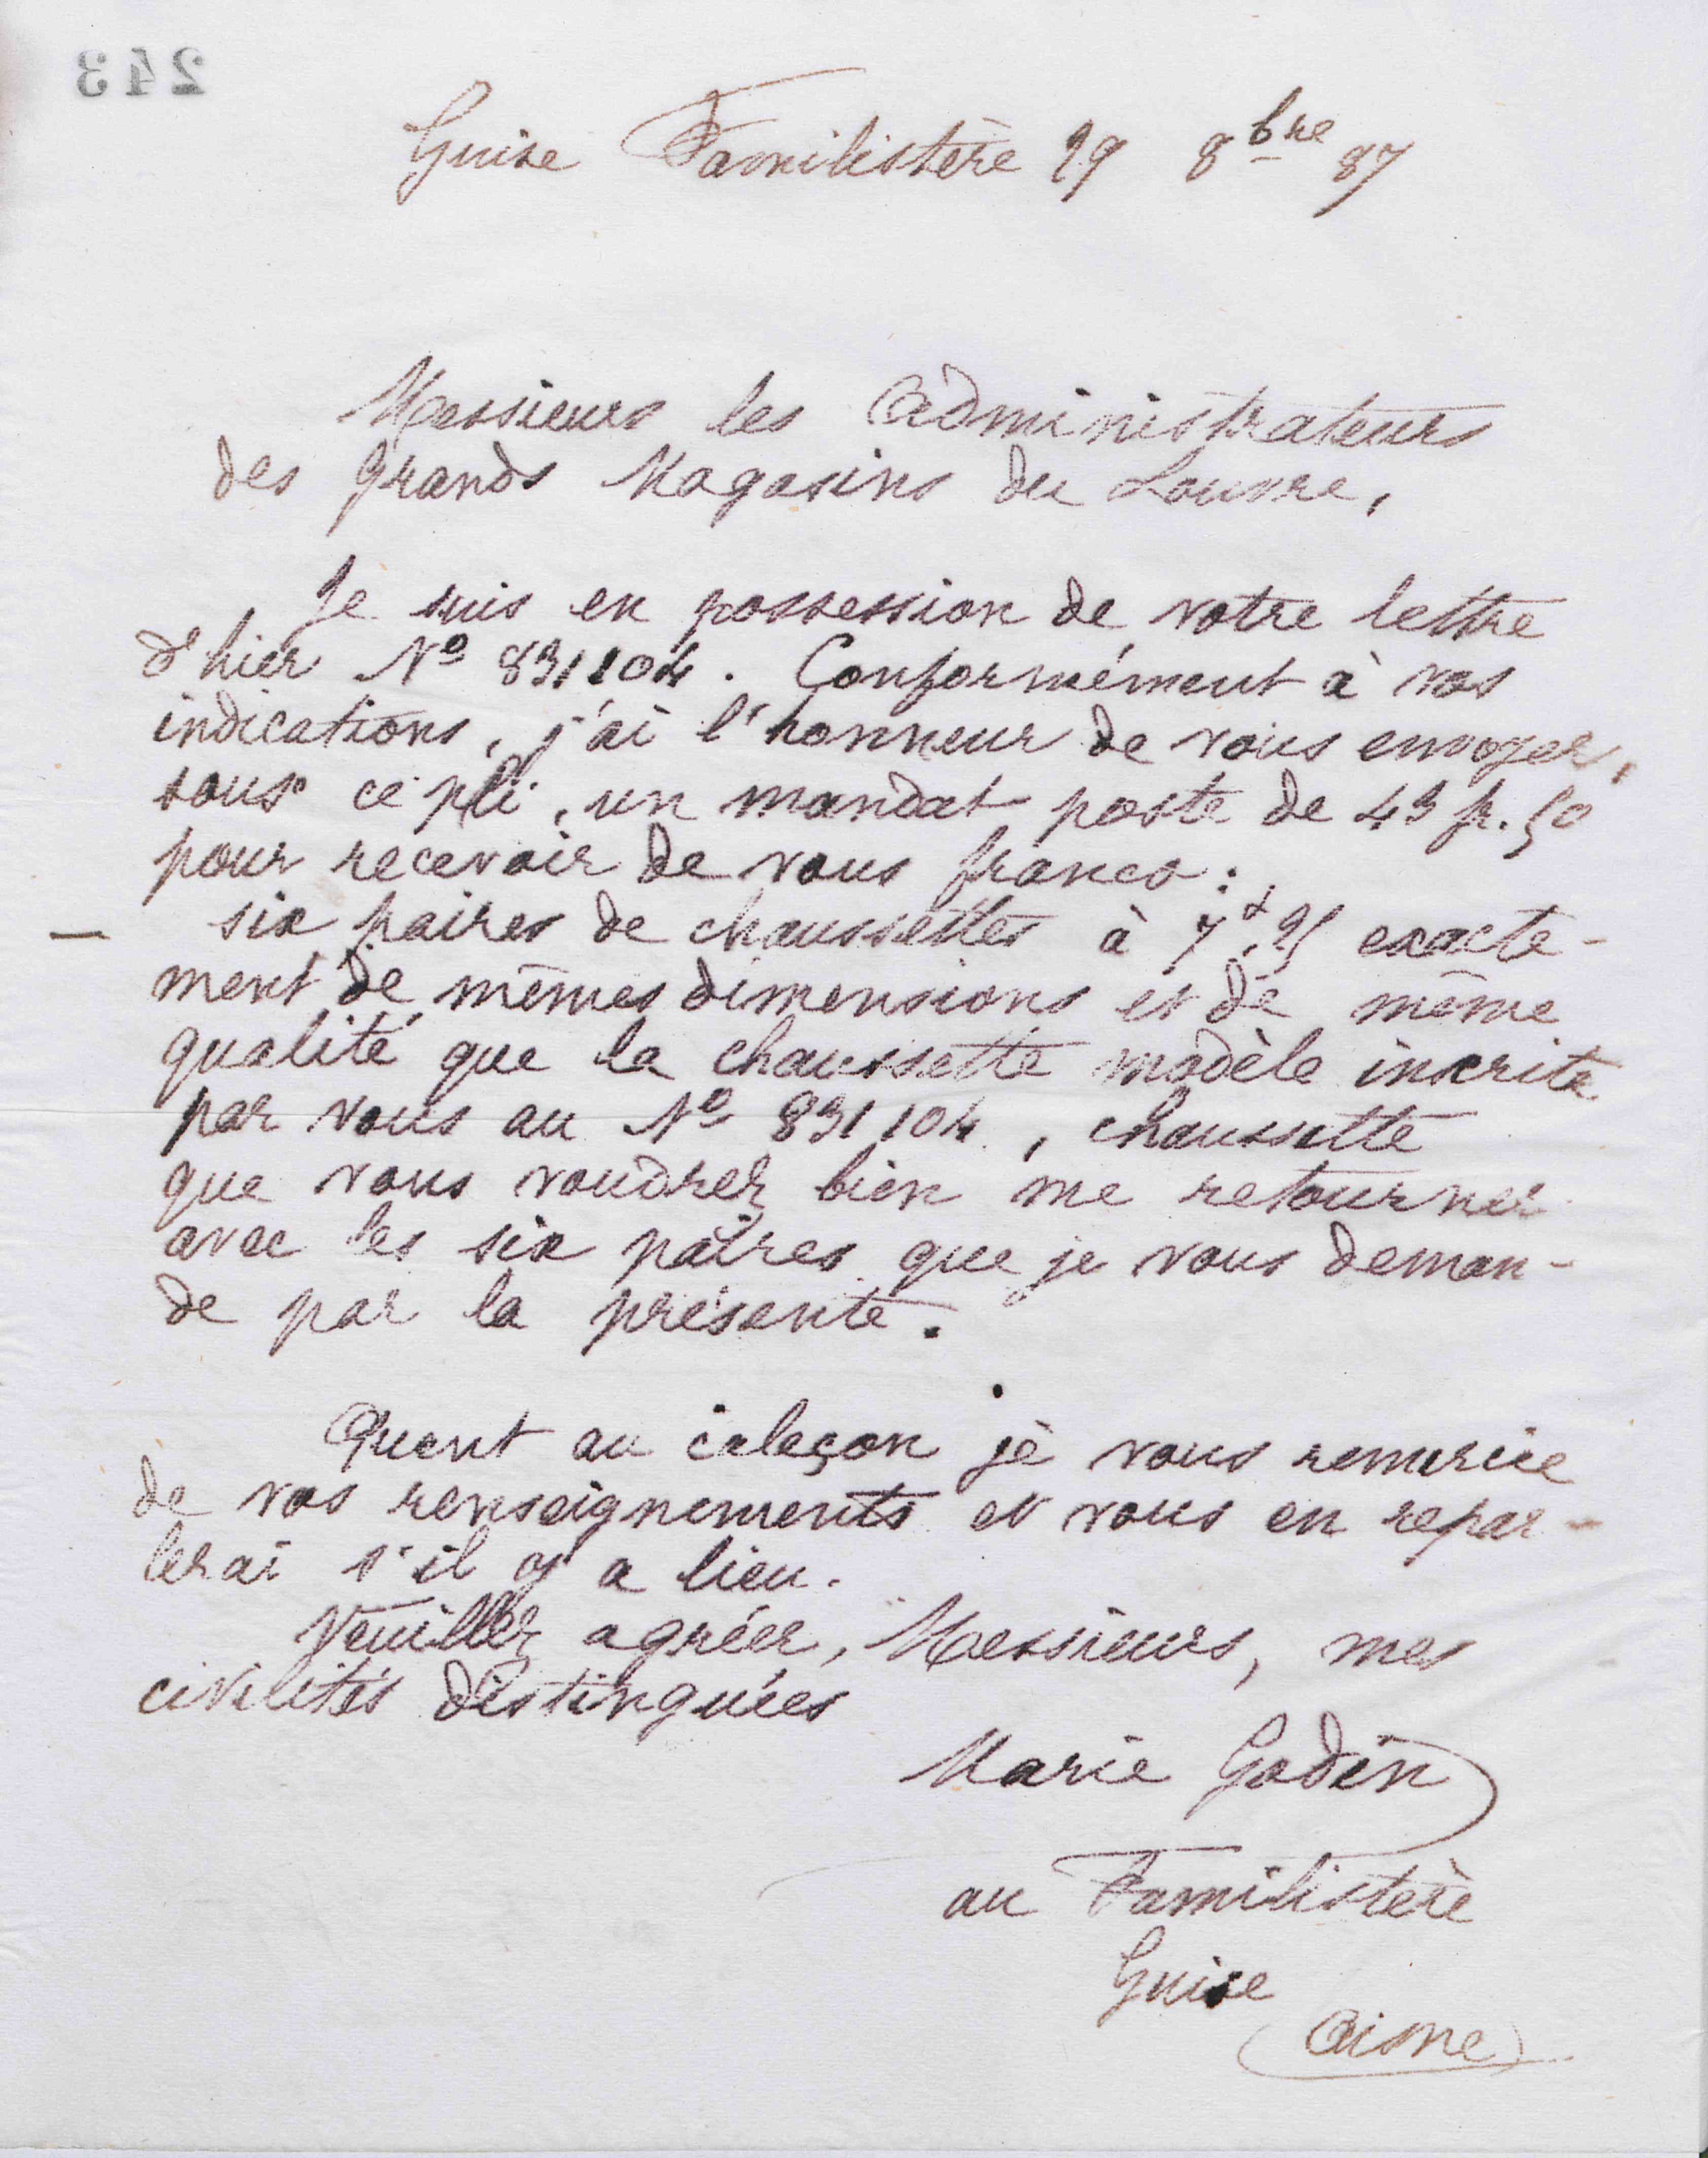 243
Guise Familistère 29 8bre 87
Messieurs les Administrateurs
des Grands Magasins du Louvre,
Je suis en possession de votre lettre
d'hier No 831104. Conformément à vos
indications, j'ai l'honneur de vous envoyer,
sous ce pli, un mandat poste de 43 fr. 50
pour recevoir de vous franco :
six paires de chaussettes à 7f.25 exacte-
ment de mêmes dimensions et de même
qualité que la chaussette modèle inscrite
par vous au No 831104, chaussette
que vous voudrez bien me retourner
avec les six paires que je vous deman-
de par la présente.
Quant au caleçon je vous remercie
de vos renseignements et vous en repar-
lerai s'il y a lieu.
Veuillez agréer, Messieurs, mes
civilités distinguées
Marie Godin
au Familistère
Guise
(Aisne)